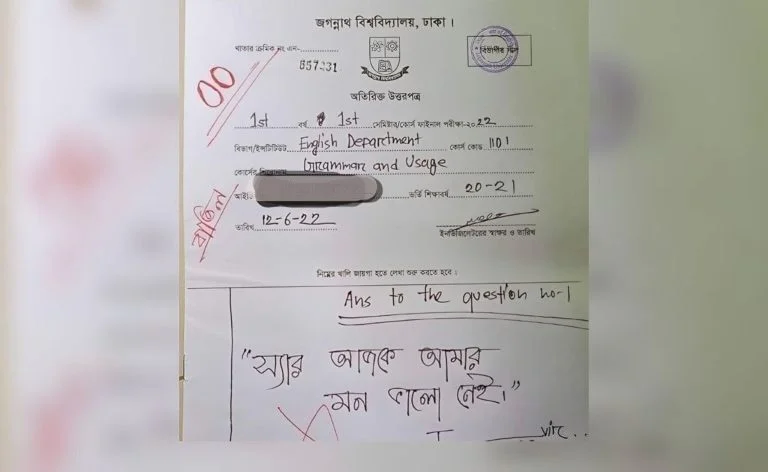 জগন্নাথ বিশ্ববিদ্যালয়, ঢাকা।
খাতার ক্রমিক নং এন-
857231
00
অতিরিক্ত উত্তরপত্র
1st বর্ষ 1st সেমিস্টার/কোর্স ফাইনাল পরীক্ষা-২০22
বিভাগ/ইন্সটিটিউট English Department কোর্স কোড 1101
কোর্সের Grammar and Usage
আইডি ভর্তি শিক্ষাবর্ষ 20-21
বাতিল
তারিখ 12-6-22
ইনভিজিলেটরের স্বাক্ষর ও তারিখ
নিম্নের খালি জায়গা হতে লেখা শুরু করতে হবে।
Ans to the question no-1
"স্যার আজকে আমার
মন ভালো নেই।"